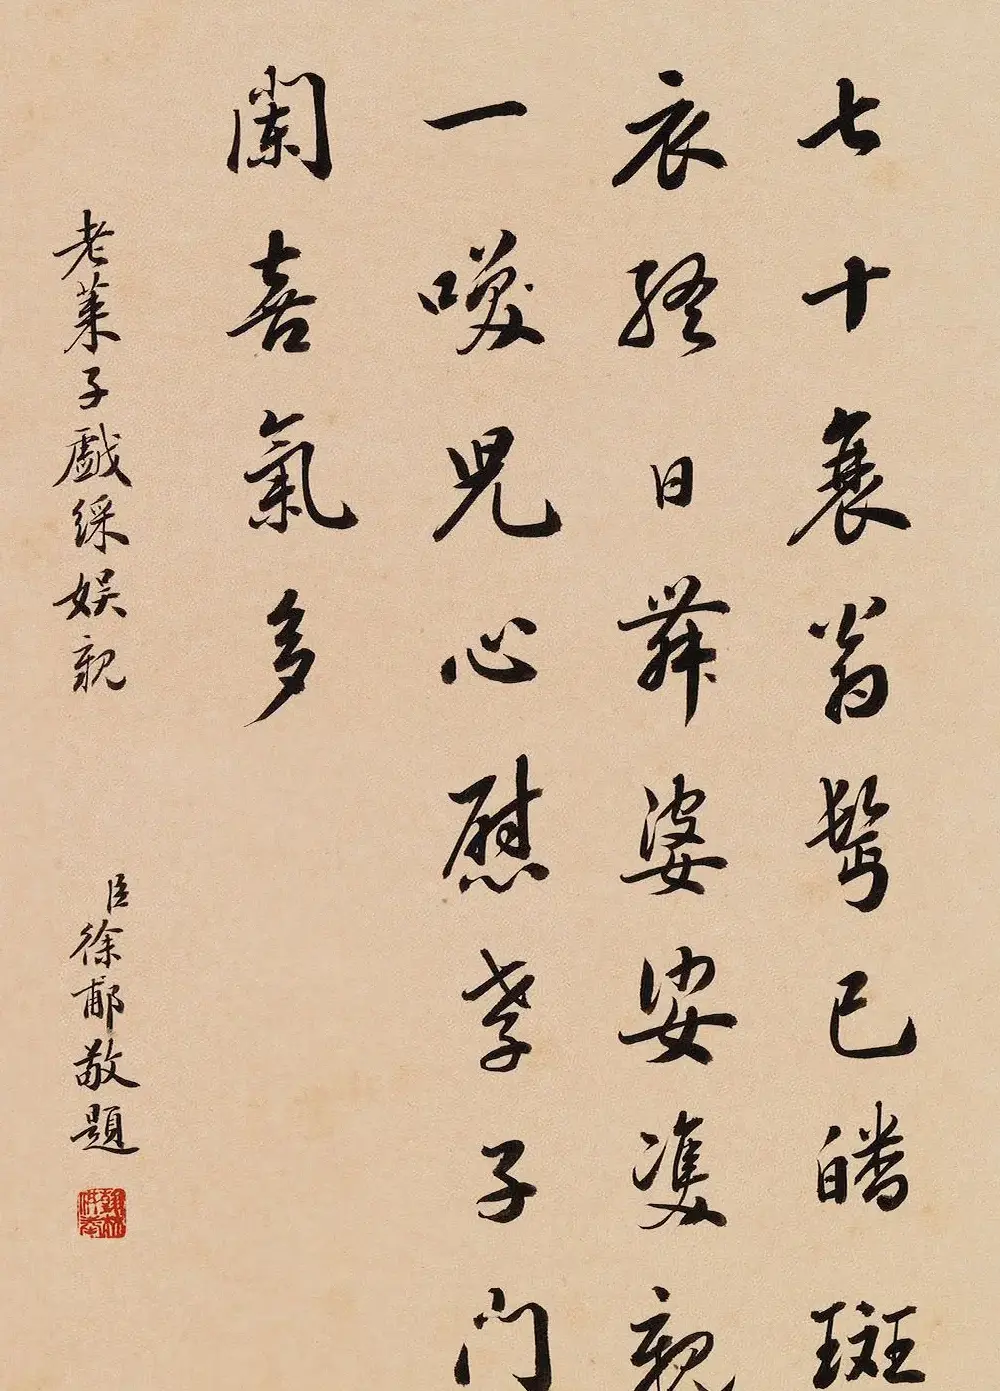 七十衰翁鬢已皤斑
衣終日舞婆娑雙親
一笑兒心慰孝子門
闌喜氣多
老萊子戲綵娛親
臣徐郙敬題